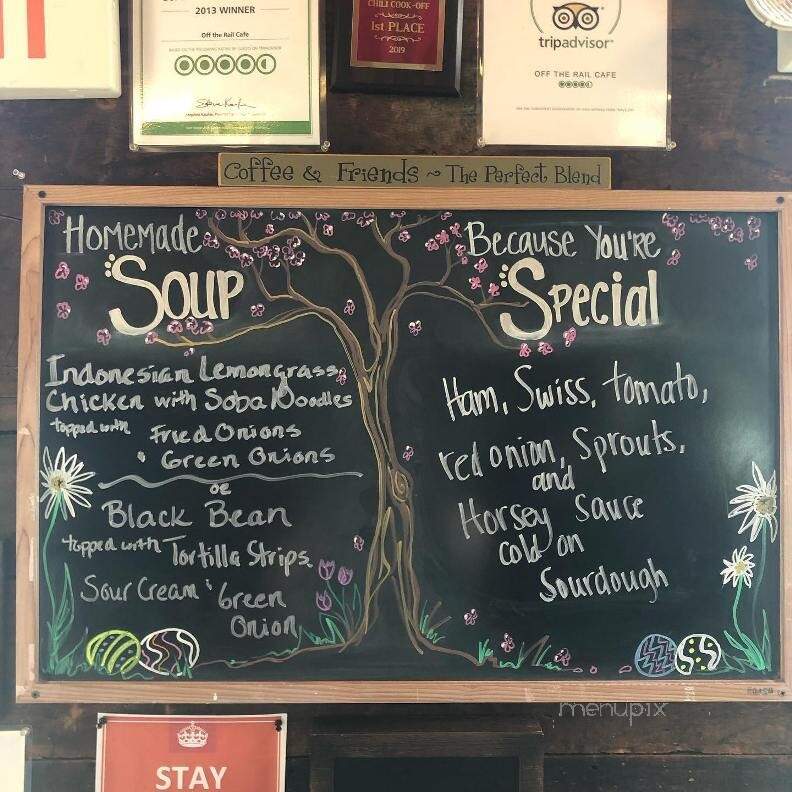 2013 WINNER
Off the Rail Cafe
CHILI COOK-OFF
1st PLACE
2019
tripadvisor
OFF THE RAIL CAFE
Coffee & Friends ~ The Perfect Blend
Homemade
Soup
Indonesian Lemongrass
Chicken with Soba Noodles
topped with Fried Onions
& Green Onions
or
Black Bean
topped with Tortilla Strips,
Sour Cream & Green
Onion
Because You're
Special
Ham, Swiss, tomato,
red onion, Sprouts,
and
Horsey Sauce
cold on
Sourdough
menupix
STAY